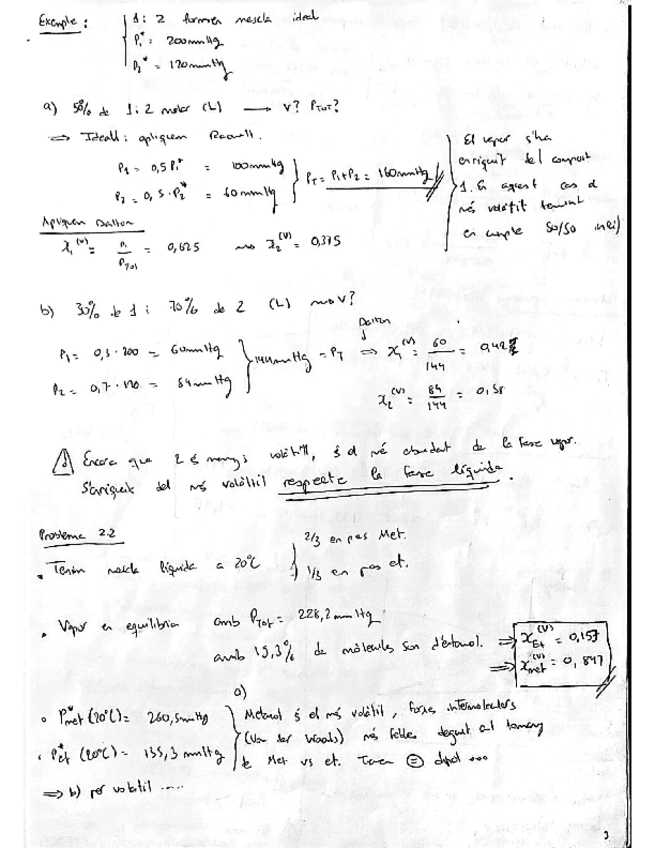 Exemple: 1 i 2 formen mescla ideal
P₁* = 200mmHg
P₂* = 120mmHg
a) 50% de 1 i 2 molar (L) → V? P_TOT?
⇒ Ideal: apliquem Raoult.
P₁ = 0,5 P₁* = 100mmHg
P₂ = 0,5 · P₂* = 60mmHg
P_T = P₁+P₂ = 160mmHg
El vapor s'ha
enriquit del compost
1. En aquest cas el
més volàtil
en compte 50/50 inicial
Apliquem Dalton
x₁^(v) = P₁/P_TOT = 0,625 x₂^(v) = 0,375
b) 30% de 1 i 70% de 2 (L) V?
P₁ = 0,3 · 200 = 60mmHg
P₂ = 0,7 · 120 = 84mmHg
144mmHg = P_T
Dalton
⇒ x₁^(v) = 60/144 = 0,42
x₂^(v) = 84/144 = 0,58
⚠ Encara que 2 és menys volàtil, és el més abundant de la fase vapor.
S'enriqueix del més volàtil respecte la fase líquida.
Problema 2.2
• Tenim mescla líquida a 20ºC
2/3 en pes Met.
1/3 en pes et.
• Vapor en equilibri amb P_Tot = 228,2 mmHg
amb 15,3% de molècules son d'etanol.
⇒ x_Et^(v) = 0,153
⇒ x_met^(v) = 0,847
a)
• P*_met (20ºC) = 260,5mmHg
• P*_et (20ºC) = 135,3 mmHg
Metanol és el més volàtil, forces intermoleculars
(Van der Waals) més febles degut al tamany
de Met vs et. Tenen = dipol ...
⇒ b) per volàtil .....
3